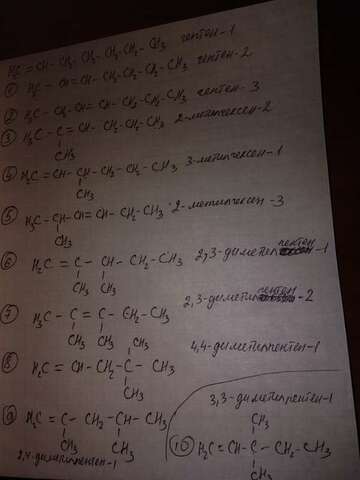 H₂C = CH - CH₂ - CH₂ - CH₂ - CH₂ - CH3 гептен-1
① H3C - CH = CH - CH₂ - CH₂ - CH₂ - CH3 гептен-2
② H3C - CH₂ - CH = CH - CH₂ - CH₂ - CH3 гептен-3
③ H3C - C = CH - CH₂ - CH₂ - CH3 2-метилгексен-2
CH3
④ H₂C = CH - CH - CH₂ - CH₂ - CH3 3-метилгексен-1
CH3
⑤ H3C - CH - CH = CH - CH₂ - CH3 2-метилгексен-3
CH3
⑥ H₂C = C - CH - CH₂ - CH3 2,3-диметилпентен-1
CH3 CH3
⑦ H3C - C = C - CH₂ - CH3 2,3-диметилпентен-2
CH3 CH3
CH3 4,4-диметилпентен-1
⑧ H₂C = CH - CH₂ - C - CH3
CH3
3,3-диметилпентен-1
⑨ H₂C = C - CH₂ - CH - CH3
CH3 CH3
2,4-диметилпентен-1
CH3
⑩ H₂C = CH - C - CH₂ - CH3
CH3